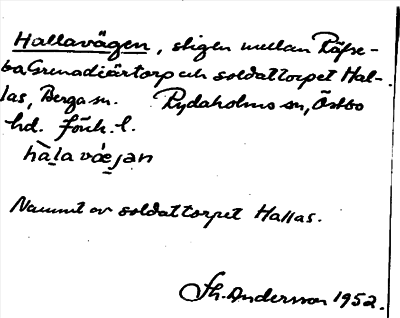 Hallavägen, stigen mellan Räfse-
bo Grenadiärtorp och soldattorpet Hal-
las, Berga sn. Rydaholms sn, Östbo
hd. Jönk. l.
hàl̠a vǽe̠jan
Namnet av soldattorpet Hallas.
Th. Andersson 1952.